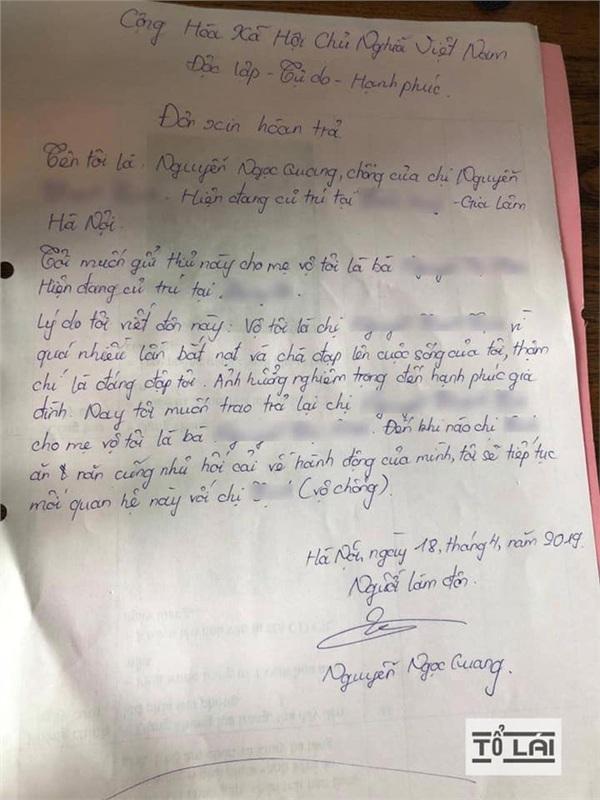 Cộng Hòa Xã Hội Chủ Nghĩa Việt Nam
Độc lập - Tự do - Hạnh phúc.
Đơn xin hoàn trả
Tên tôi là: Nguyễn Ngọc Quang, chồng của chị Nguyễn
- Hiện đang cư trú tại - Gia Lâm
Hà Nội.
Tôi muốn gửi thư này cho mẹ vợ tôi là bà
Hiện đang cư trú tại
Lý do tôi viết đơn này: Vợ tôi là chị vì
quá nhiều lần bắt nạt và chà đạp lên cuộc sống của tôi, thậm
chí là đánh đập tôi. Ảnh hưởng nghiêm trọng đến hạnh phúc gia
đình. Nay tôi muốn trao trả lại chị
cho mẹ vợ tôi là bà . Đến khi nào chị
ăn năn cũng như hối cải về hành động của mình, tôi sẽ tiếp tục
mối quan hệ này với chị (vợ chồng).
Hà Nội, ngày 18, tháng 4, năm 2019.
Người làm đơn.
Nguyễn Ngọc Quang.
TỔ LÁI